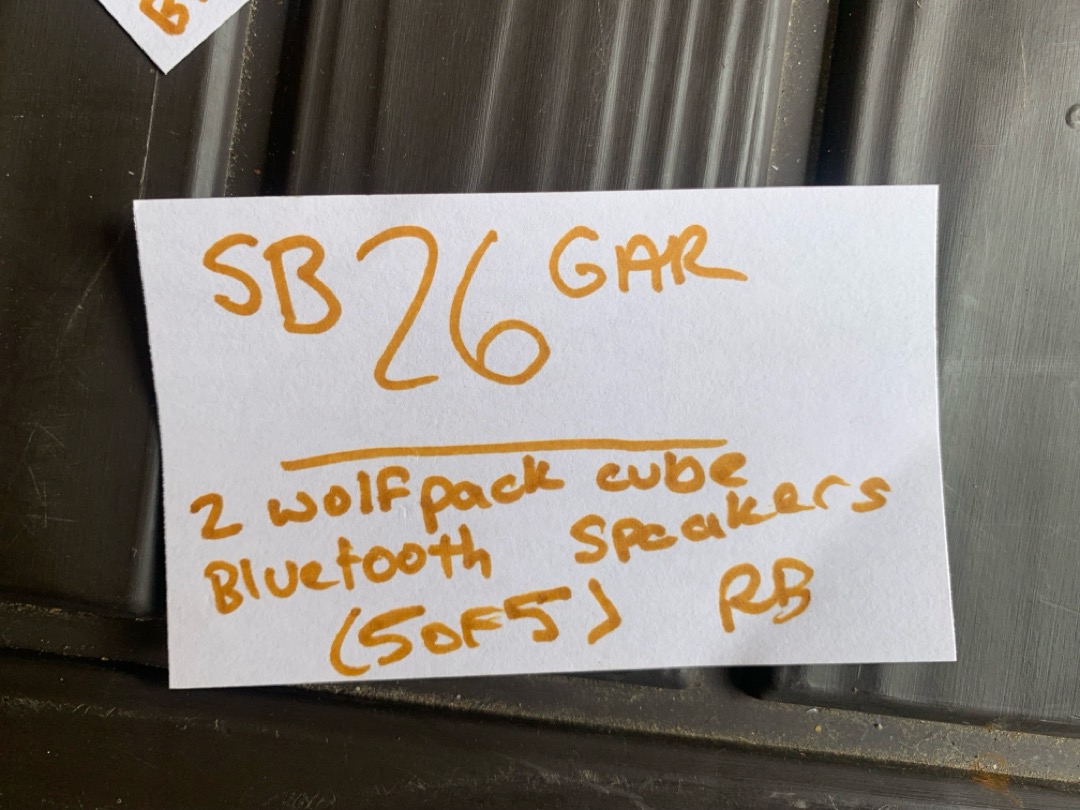 SB 26 GAR
2 wolfpack cube
Bluetooth Speakers
(5 OF 5) RB